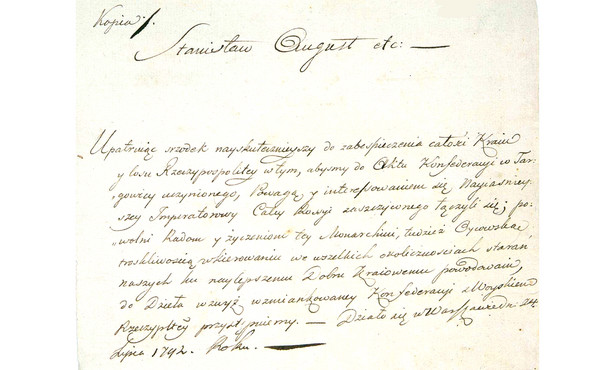 Kopia
Stanisław August etc: —
Upatruiąc srzodek nayskutecznieyszy do zabespieczenia całości Kraiu
y losu Rzeczypospolitey w tym, abysmy do Aktu Konfederacyi w Tar-
gowicy uczynionego, Powagą y interessowaniem się Nayiasniey-
szey Imperatorowy Całey Rossyi zaszczyconego łączyli się; po-
wolni Radom y życzeniom tey Monarchini, tudzież Oycowską
troskliwością w kierowaniu we wszelkich okolicznosciach starań
naszych ku naylepszemu Dobru Kraiowemu powodowani,
do Dzieła wzwyż wzmiankowaney Konfederacyi z Woyskiem
Rzeczyplltey przystępuiemy. — Działo się w Warszawie dn. 24.
Lipca 1792. Roku. —